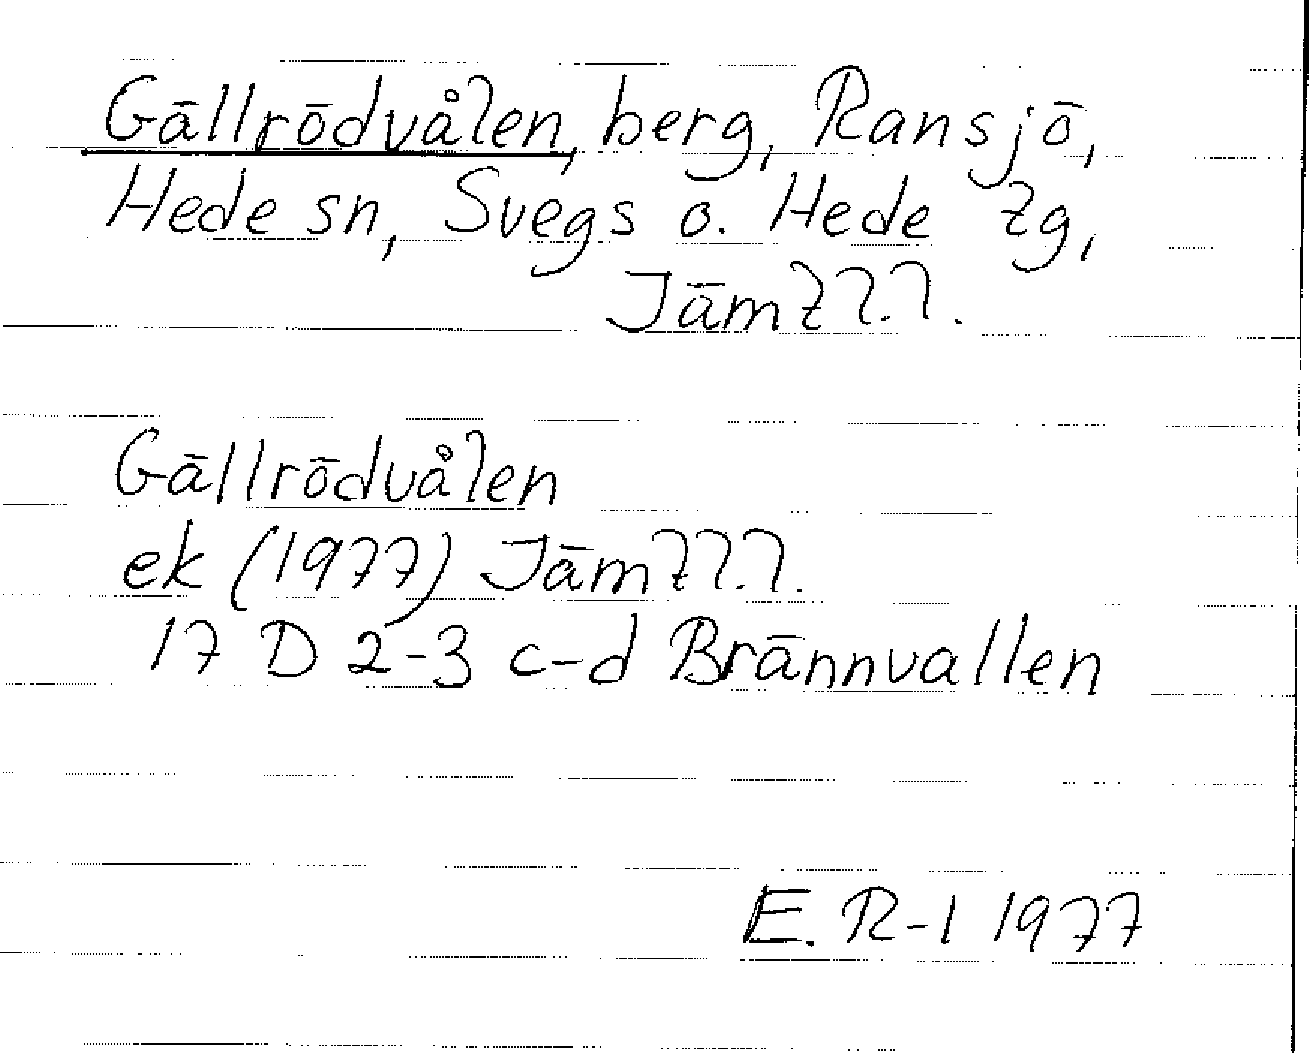 Gällrödvålen, berg, Ransjö,
Hede sn, Svegs o. Hede tg,
Jämtl.l.
Gällrödvålen
ek (1977) Jämtl.l.
17 D 2-3 c-d Brännvallen
E. R-l 1977